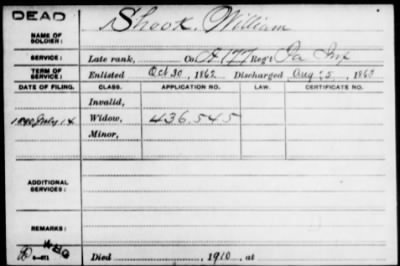 DEAD
NAME OF SOLDIER: Shook, William
SERVICE: Late rank, Co. A 177 Reg't Pa Inf
TERM OF SERVICE: Enlisted Oct 30, 1862 Discharged Aug 5, 1863
DATE OF FILING. CLASS. APPLICATION NO. LAW. CERTIFICATE NO.
Invalid,
1890 July 14 Widow, 436.545
Minor,
ADDITIONAL SERVICES:
REMARKS:
Died , 1910, at